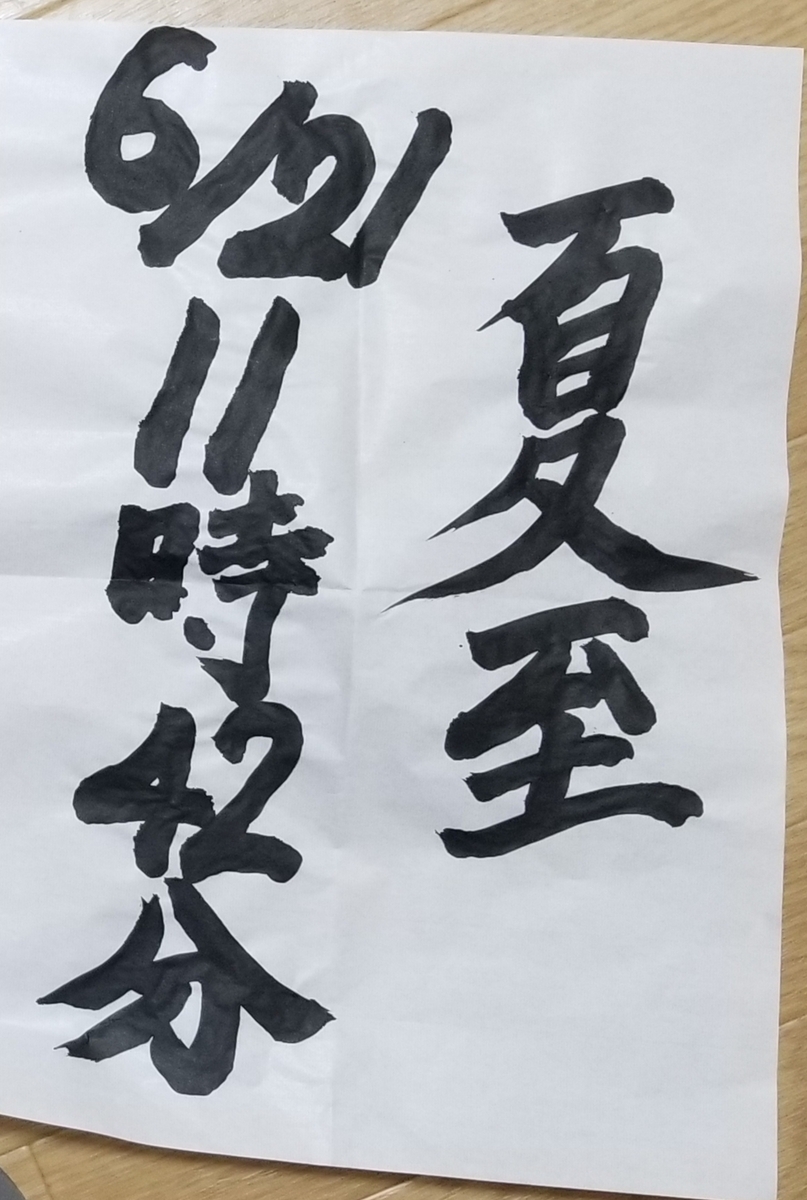 夏至
6/21
11時
42分